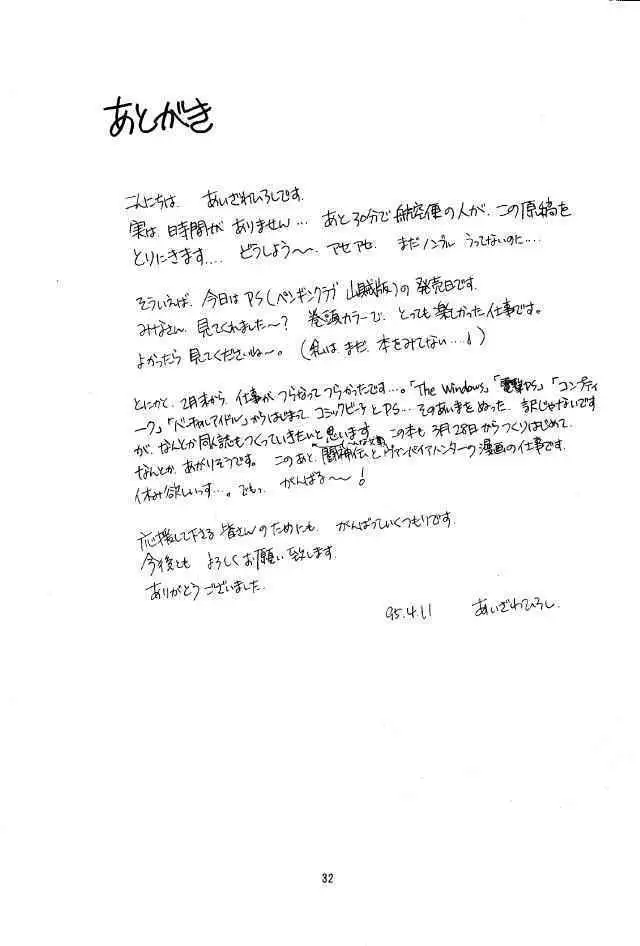 あとがき
こんにちは あいざわひろしです.
実は 時間が ありません… あと30分で 航空便の人が、この原稿を
とりにきます…. どうしよう〜. アセアセ. まだノンブル うってないのに….
そういえば、今日はPS(ペンギンクラブ 山賊版)の 発売日です.
みなさん、見てくれました〜? 巻頭カラーで、とっても楽しかった仕事です。
よかったら 見てくださいね〜。(私は、まだ、本をみてない…!)
とにかく、2月末から、仕事が つらなって つらかったです…。「The Windows」「電撃PS」「コンプティ
ーク」「バーチャルアイドル」からはじまって コミックピー子とPS… そのあいまをぬった 訳じゃないです
が、なんとか 同人誌もつくっていきたいと思います. この本も 3月28日からつくりはじめて、
なんとか、あがりそうです。 このあと、闘神伝と ヴァンパイアハンターの漫画の仕事です.
休み欲しいっす…。でもっ がんばる〜!
応援して下さる 皆さんのためにも、がんばっていくつもりです.
今後とも よろしくお願い致します.
ありがとうございました.
95.4.11 あいざわひろし.
32